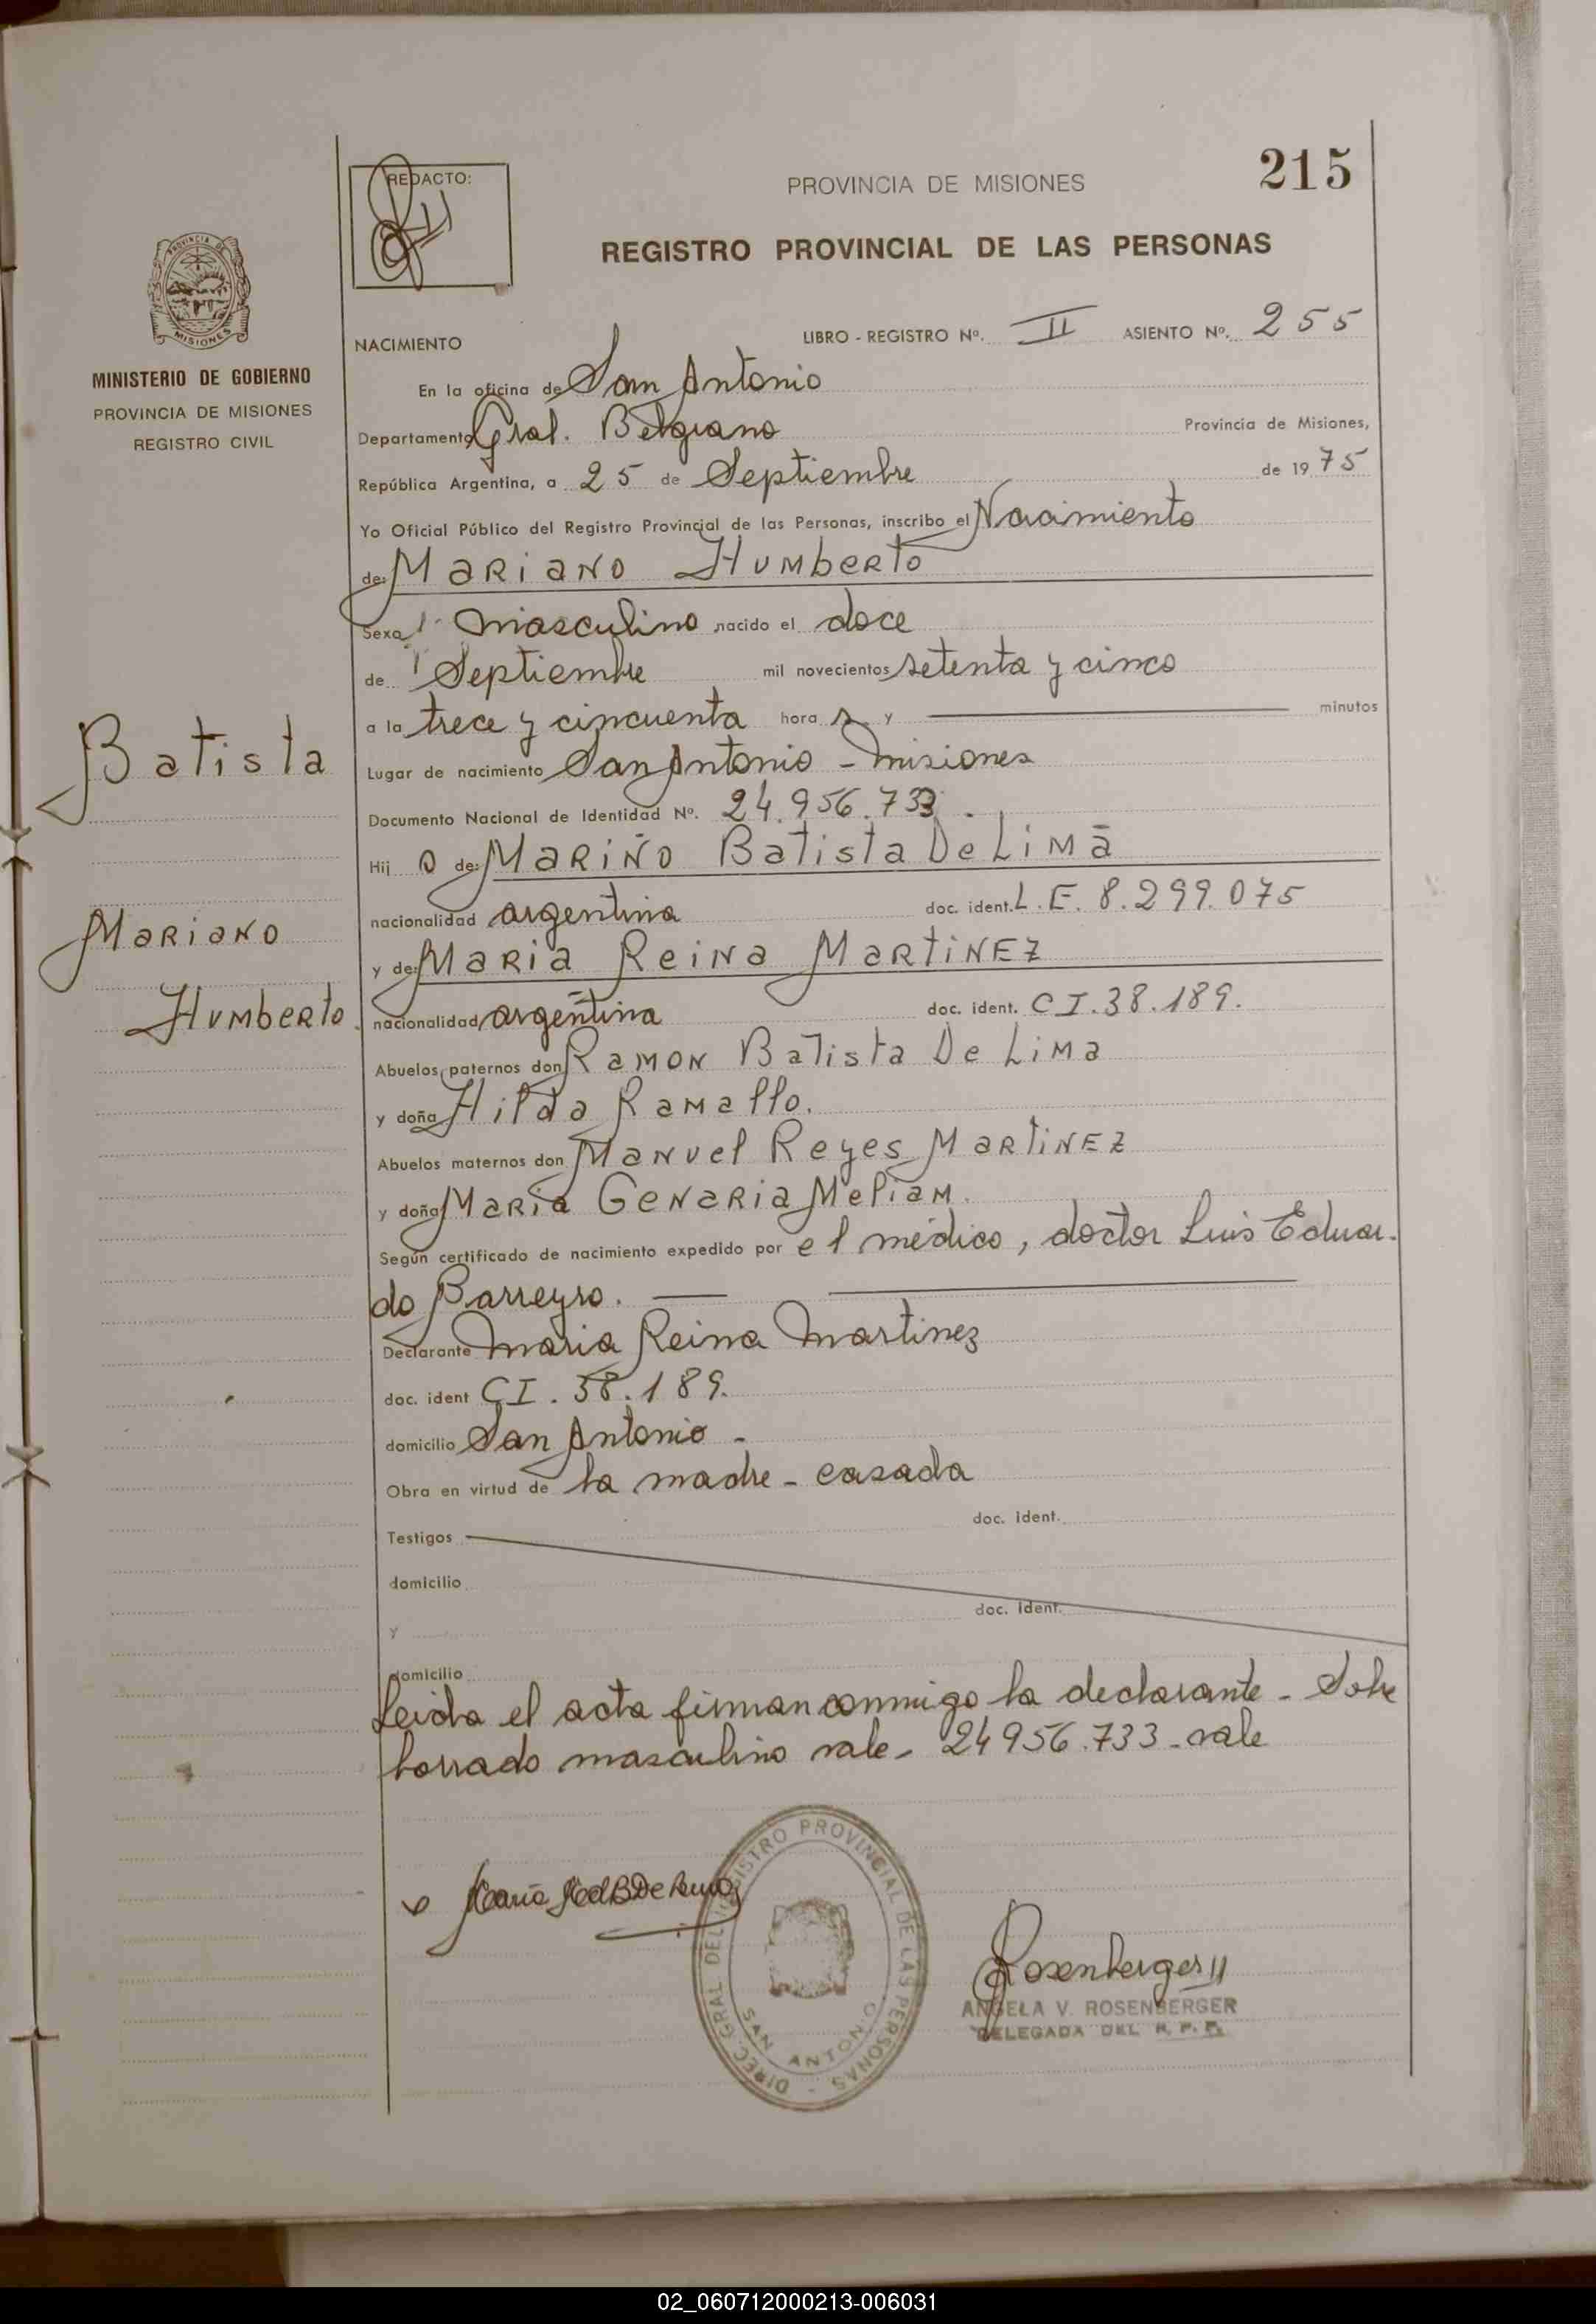 215
REDACTO:
PROVINCIA DE MISIONES
REGISTRO PROVINCIAL DE LAS PERSONAS
PROVINCIA DE
MISIONES
MINISTERIO DE GOBIERNO
PROVINCIA DE MISIONES
REGISTRO CIVIL
NACIMIENTO LIBRO - REGISTRO Nº. II ASIENTO Nº. 255
En la oficina de San Antonio
Departamento Gral. Belgrano Provincia de Misiones,
República Argentina, a 25 de Septiembre de 1975
Yo Oficial Público del Registro Provincial de las Personas, inscribo el Nacimiento
de: Mariano Humberto
Sexo masculino nacido el doce
de Septiembre mil novecientos setenta y cinco
a la trece y cincuenta hora s y minutos
Batista
Lugar de nacimiento San Antonio - Misiones
Documento Nacional de Identidad Nº. 24.956.733.
Hij o de: Mariño Batista De Limā
Mariano
Humberto.
nacionalidad argentina doc. ident. L.E. 8.299.075
y de: Maria Reina Martinez
nacionalidad argentina doc. ident. CI.38.189.
Abuelos paternos don Ramon Batista De Lima
y doña Hilda Ramallo.
Abuelos maternos don Manuel Reyes Martinez
y doña Maria Genaria Meliam.
Según certificado de nacimiento expedido por el médico, doctor Luis Eduar-
do Barreyro.
Declarante Maria Reina Martinez
doc. ident CI. 38.189.
domicilio San Antonio -
Obra en virtud de la madre - casada
doc. ident.
Testigos
domicilio
doc. ident.
y
domicilio
Leida el acta firman conmigo la declarante - Sobre
borrado masculino vale - 24956.733 - vale
DIREC. GRAL DEL REGISTRO PROVINCIAL DE LAS PERSONAS -
SAN ANTONIO
Rosenberger
ANGELA V. ROSENBERGER
DELEGADA DEL R. P. P.
02_060712000213-006031